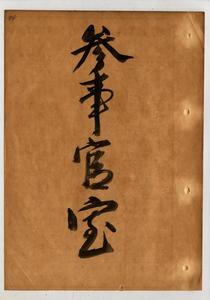 参事官室